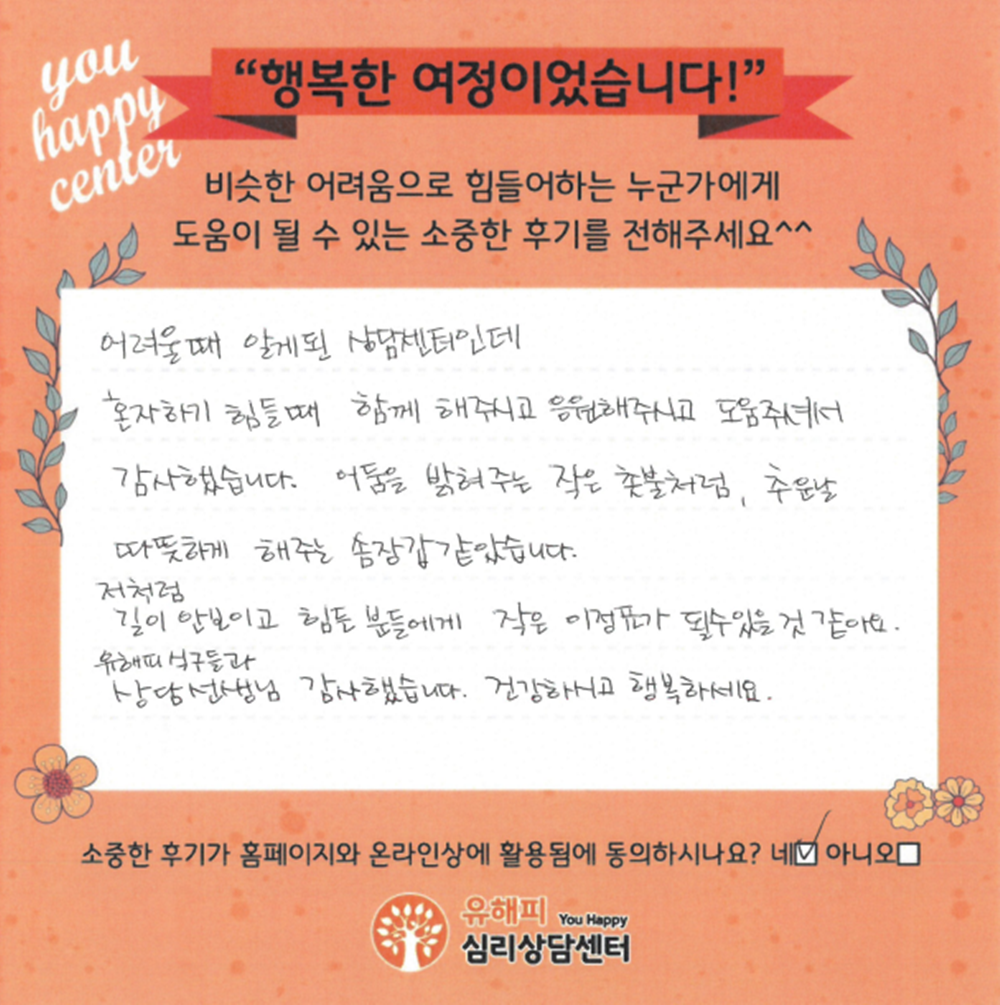 you
happy
center
“행복한 여정이었습니다!”
비슷한 어려움으로 힘들어하는 누군가에게
도움이 될 수 있는 소중한 후기를 전해주세요^^
어려울때 알게된 상담센터인데
혼자하기 힘들때 함께 해주시고 응원해주시고 도움주셔서
감사했습니다. 어둠을 밝혀주는 작은 촛불처럼, 추운날
따뜻하게 해주는 솜장갑같았습니다.
저처럼
길이 안보이고 힘든 분들에게 작은 이정표가 될수있을것 같아요.
유해피 식구들과
상담선생님 감사했습니다. 건강하시고 행복하세요.
소중한 후기가 홈페이지와 온라인상에 활용됨에 동의하시나요? 네☑ 아니오☐
유해피 You Happy
심리상담센터